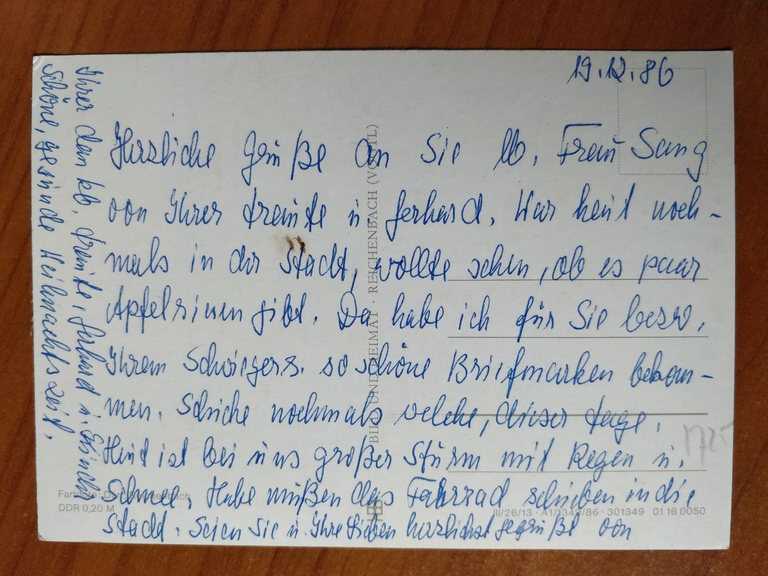 19.12.86
Herzliche Grüße an Sie lb. Frau Sang
von Ihrer Traute u. Gerhard. War heut noch-
mals in der Stadt, wollte sehen, ob es paar
Apfelsinen gibt. Da habe ich für Sie besw.
Ihrem Schwiegers. so schöne Briefmarken bekom-
men. Schicke nochmals welche, dieser Tage.
Heut ist bei uns großer Sturm mit Regen u.
Schnee, Habe müßen das Fahrrad schieben in die
Stadt. Seien Sie u. Ihre Lieben herzlichst gegrüßt von
Ihrer dan kb. Traute, Gerhard u.
Schöne, gesunde Weihnachtszeit.
BILD UND HEIMAT · REICHENBACH (VOGTL)
DDR 0,20 M
III/26/13 · A1/1340/86 · 301349 01 16 0050